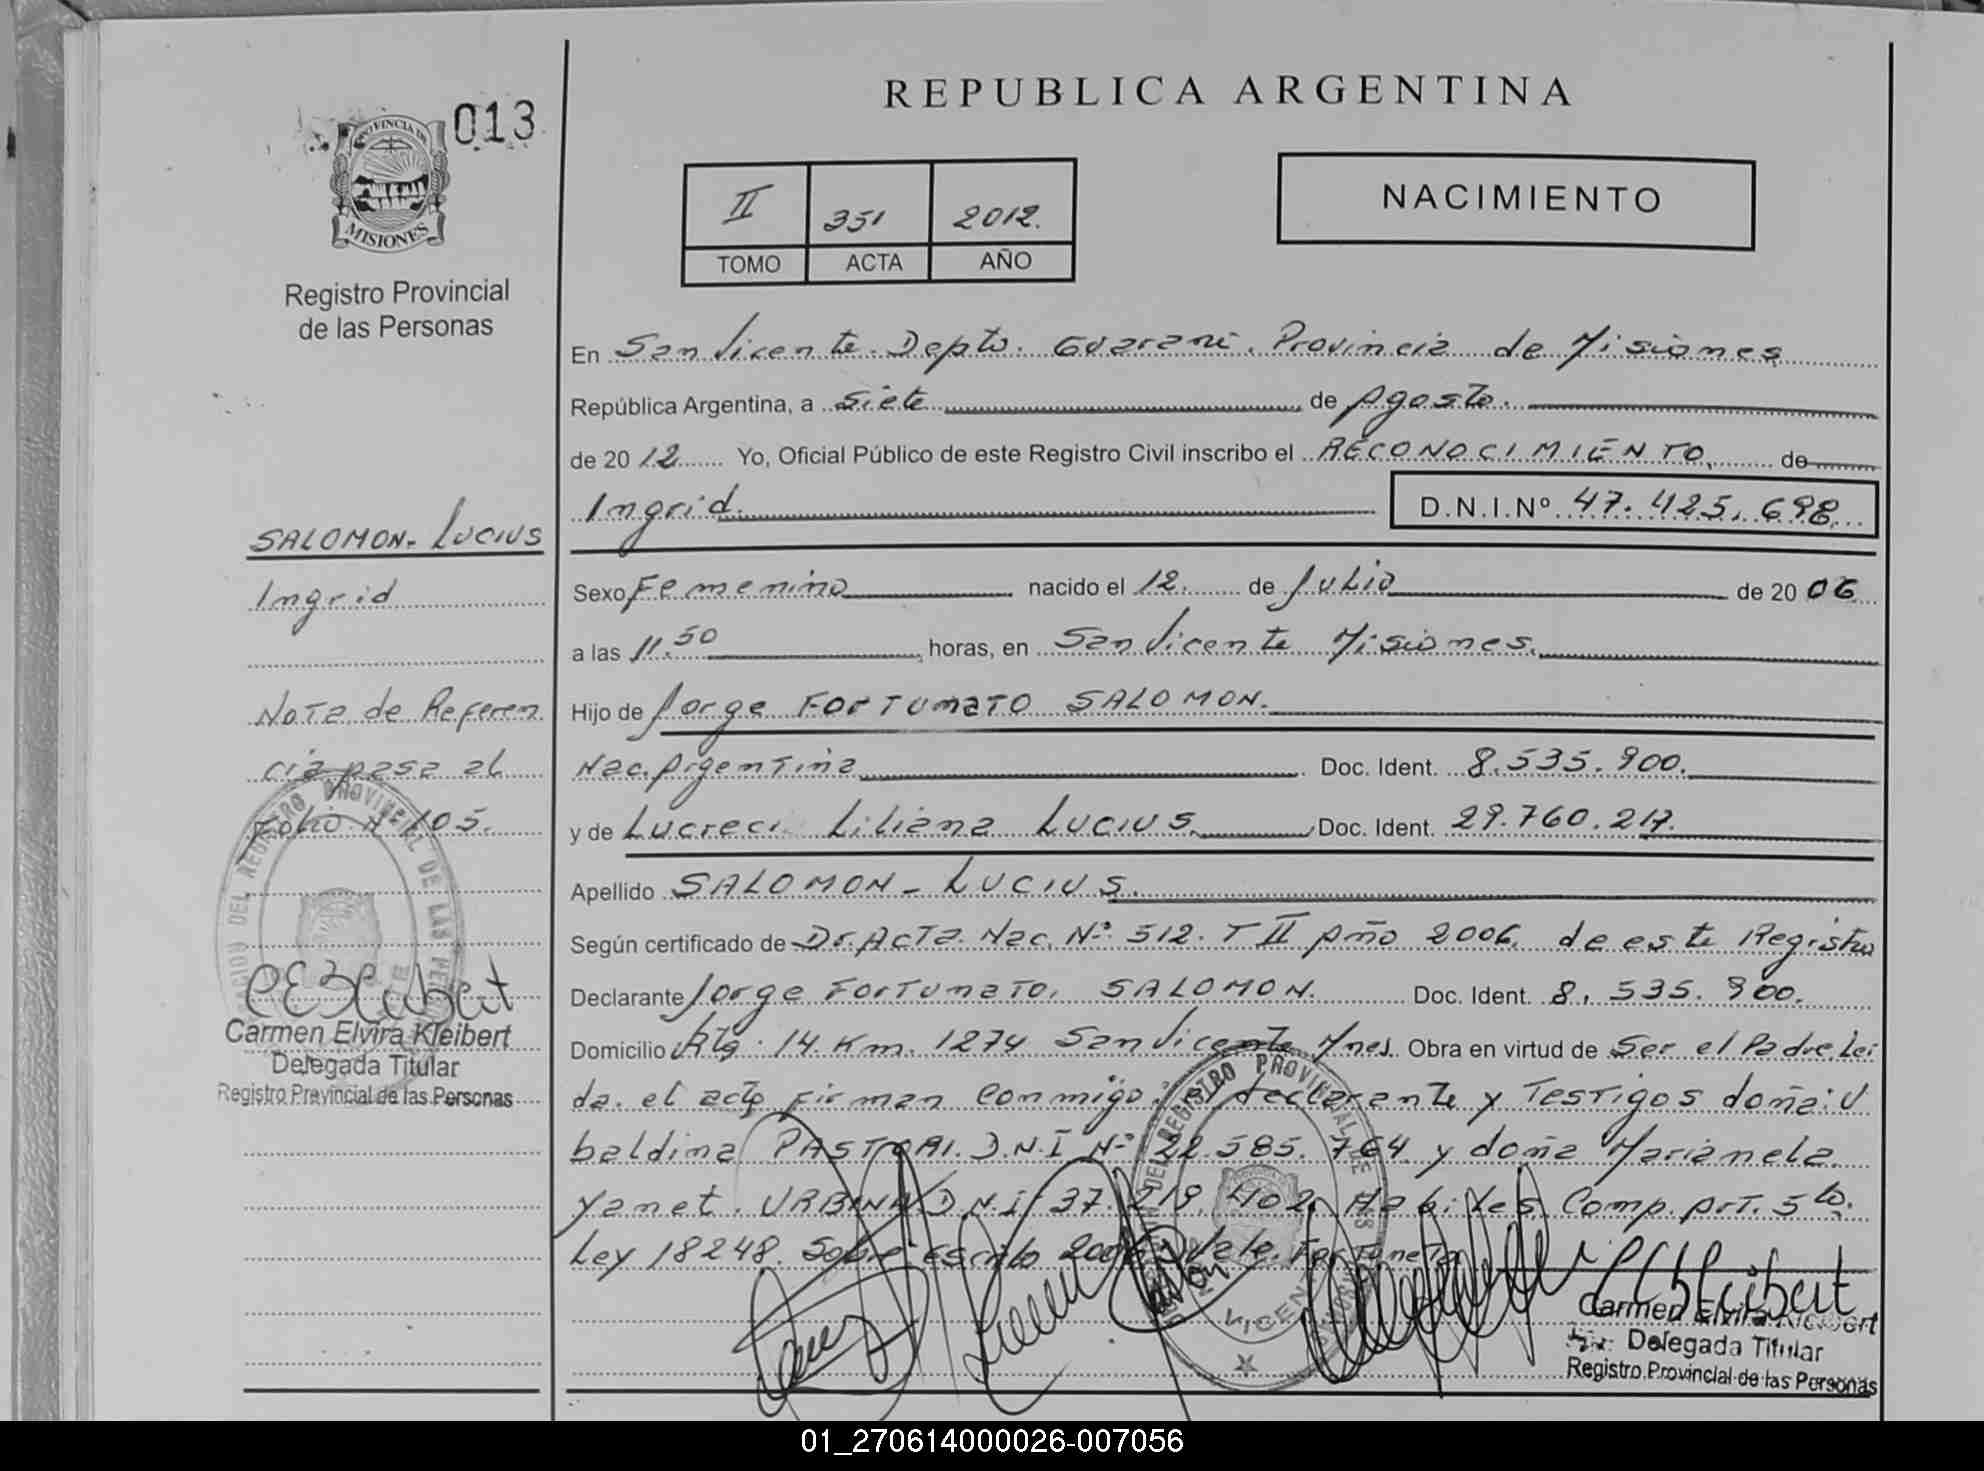 REPUBLICA ARGENTINA
013
PROVINCIA DE
MISIONES
Registro Provincial
de las Personas
II 351 2012.
TOMO ACTA AÑO
NACIMIENTO
En San Vicente. Depto. Guarani. Provincia de Misiones
República Argentina, a Siete de Agosto.
de 2012 Yo, Oficial Público de este Registro Civil inscribo el RECONOCIMIENTO. de
Ingrid. D.N.I.Nº 47.425.698
Sexo Femenino nacido el 12. de Julio de 2006
a las 11.50 horas, en San Vicente Misiones.
Hijo de Jorge FORTUNATO SALOMON.
Nac. Argentina Doc. Ident. 8.535.900.
y de Lucreci Liliana Lucius. Doc. Ident. 29.760.217.
Apellido SALOMON - LUCIUS.
Según certificado de Dr. Acta. Nac. Nº 512. T II Año 2006. de este Registro
Declarante Jorge FORTUNATO. SALOMON. Doc. Ident. 8.535.900.
Domicilio Rta. 14. Km. 1274 San Vicente Mnes. Obra en virtud de Ser el Padre. Lei
da. el acta Firman Conmigo. el declarante y Testigos doña: U
baldina PASTORI. D.N.I Nº 22.585.764 y doña Marianela
Yanet. URBINA D.N.I 37.219.402 Habiles Comp. Art. 5to.
Ley 18248. Sobre Escrito 2006 Vale. Fortunato
Carmen Elvira Kleibert
Delegada Titular
Registro Provincial de las Personas
SALOMON - LUCIUS
Ingrid
Nota de Referen
cia pasa al
Folio Nº 105.
DEL REGISTRO PROVINCIAL DE LAS
Carmen Elvira Kleibert
Delegada Titular
Registro Provincial de las Personas
DEL REGISTRO PROVINCIAL DE LAS
01_270614000026-007056